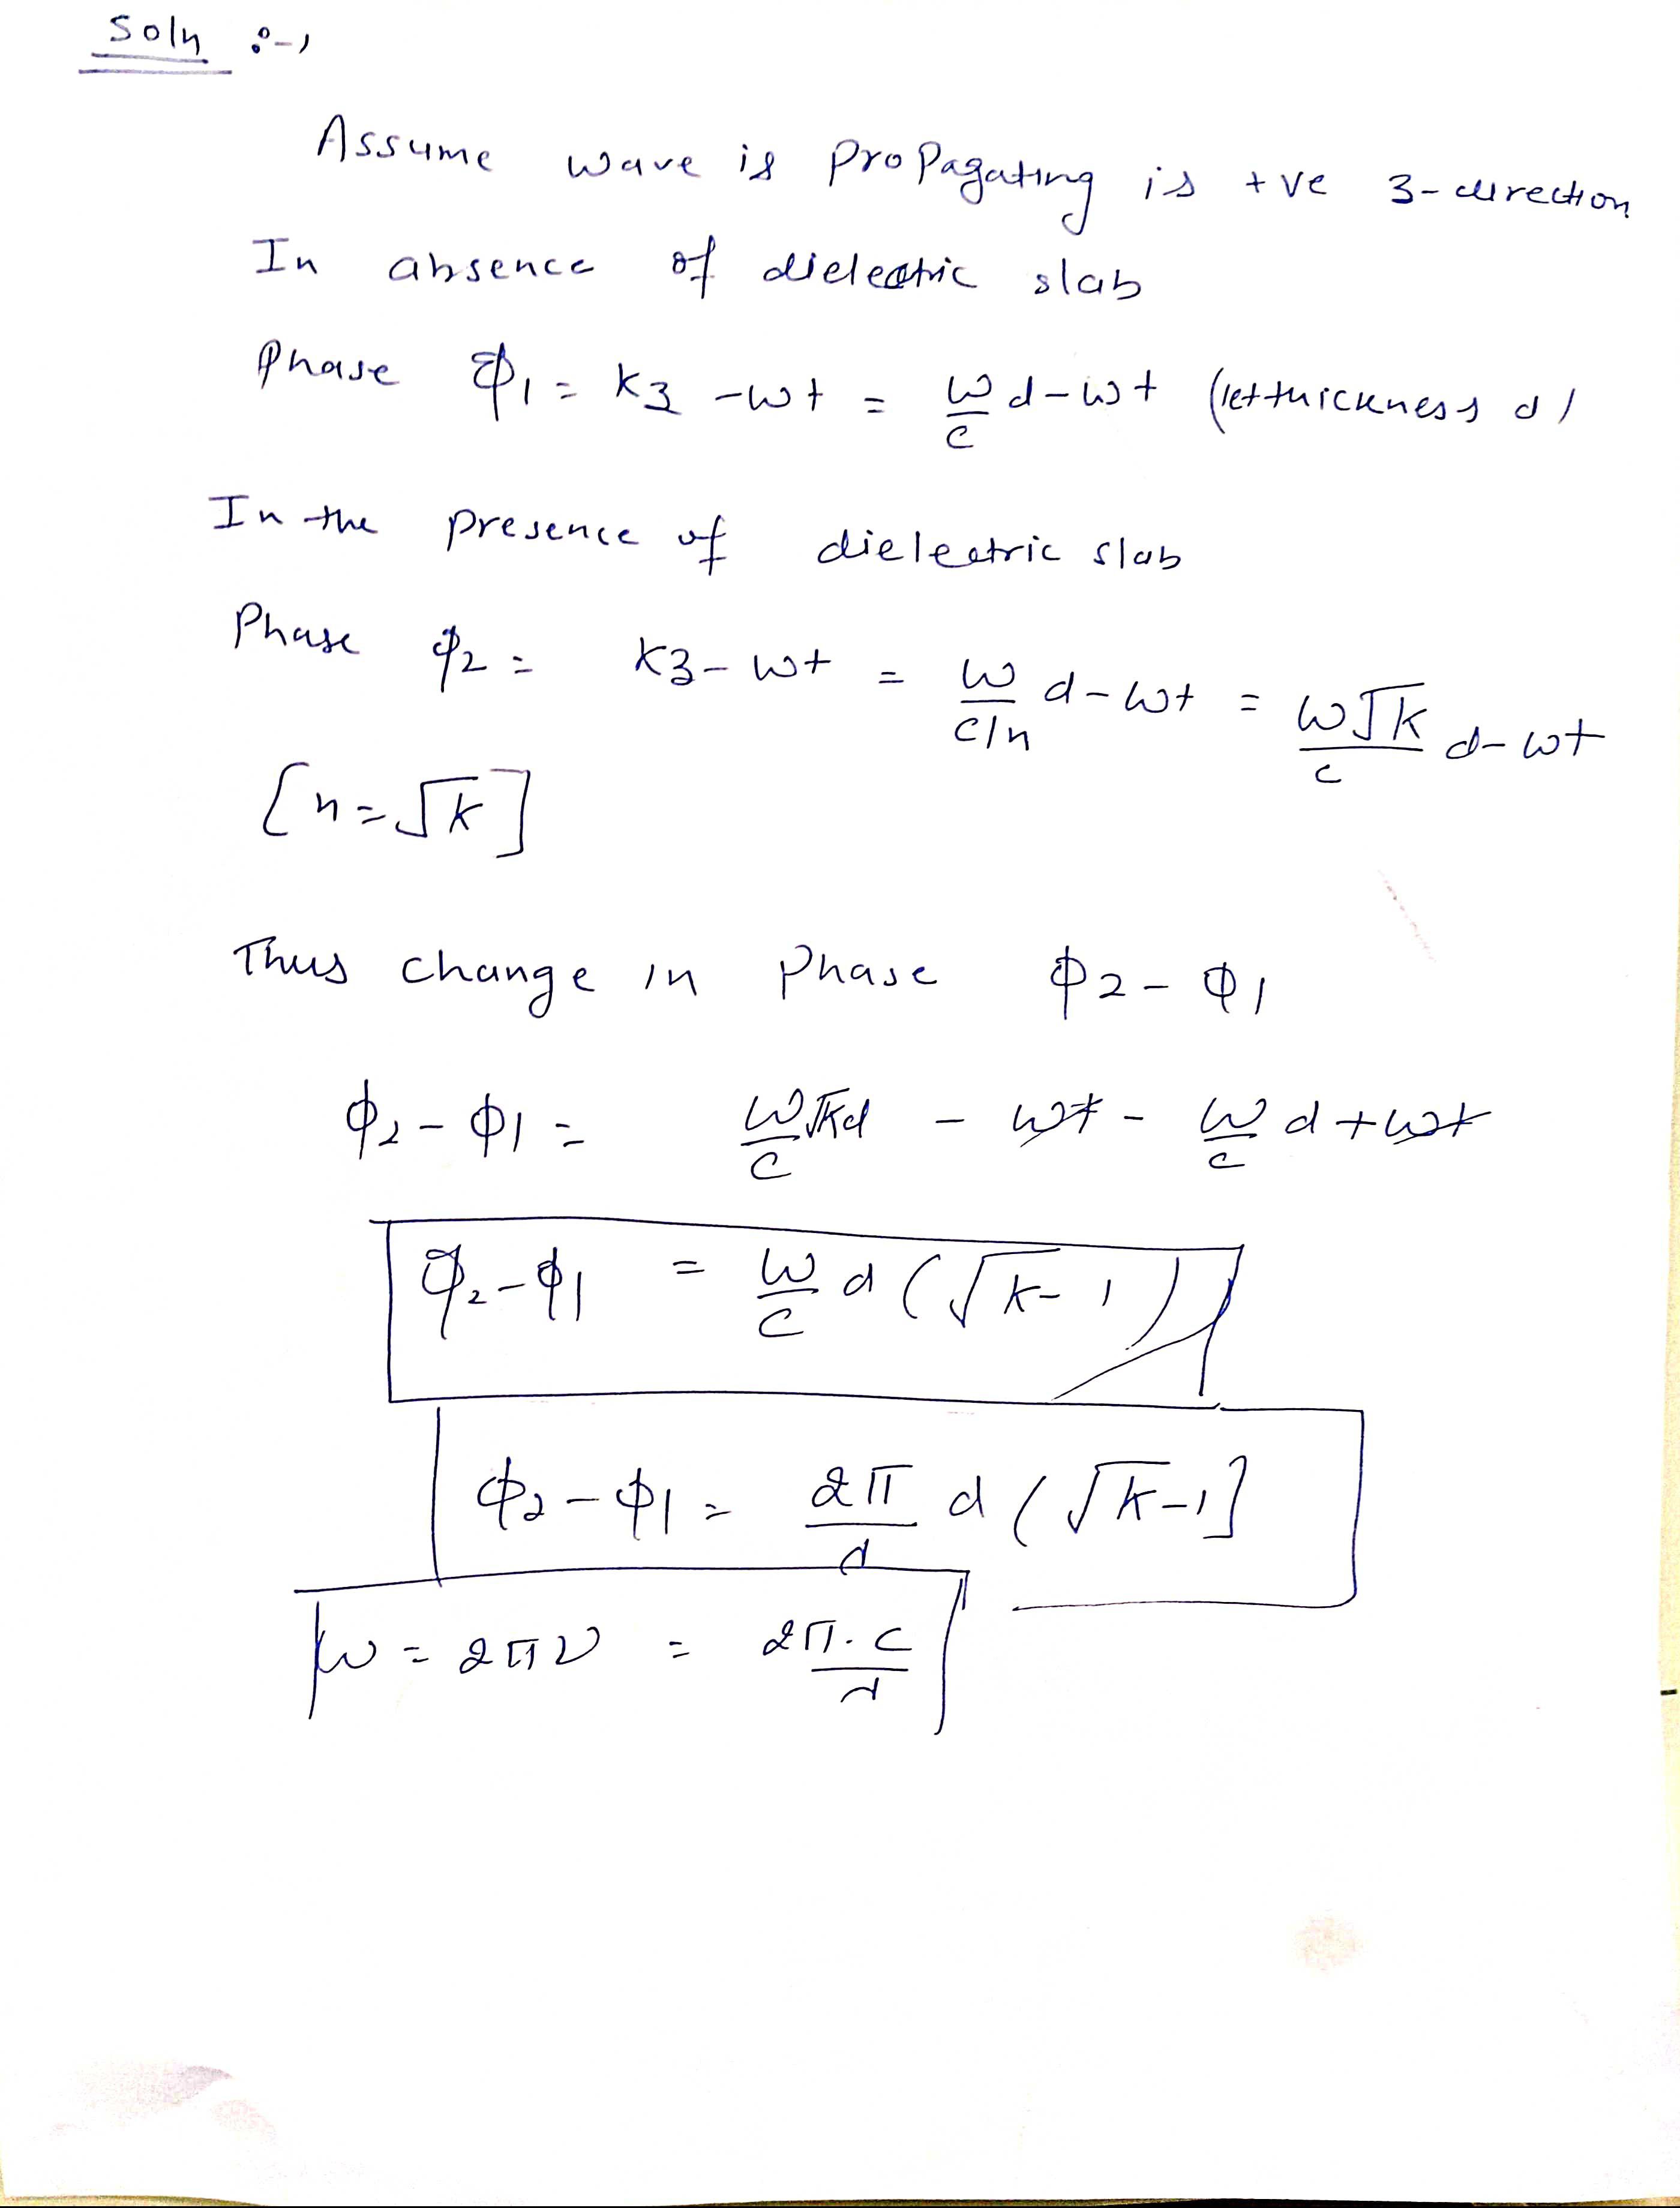 Soln :-,
Assume wave is propagating is +ve z-direction
In absence of dielectric slab
Phase Φ1 = kz - ωt = ω/c d - ωt (let thickness d)
In the presence of dielectric slab
Phase Φ2 = kz - ωt = ω/(c/n) d - ωt = ω√k/c d - ωt
[n = √k]
Thus change in phase Φ2 - Φ1
Φ2 - Φ1 = ω√kd/c - ωt - ω/c d + ωt
Φ2 - Φ1 = ω/c d (√k - 1)
Φ2 - Φ1 = 2π/λ d (√k - 1]
ω = 2πν = 2π·c/λ